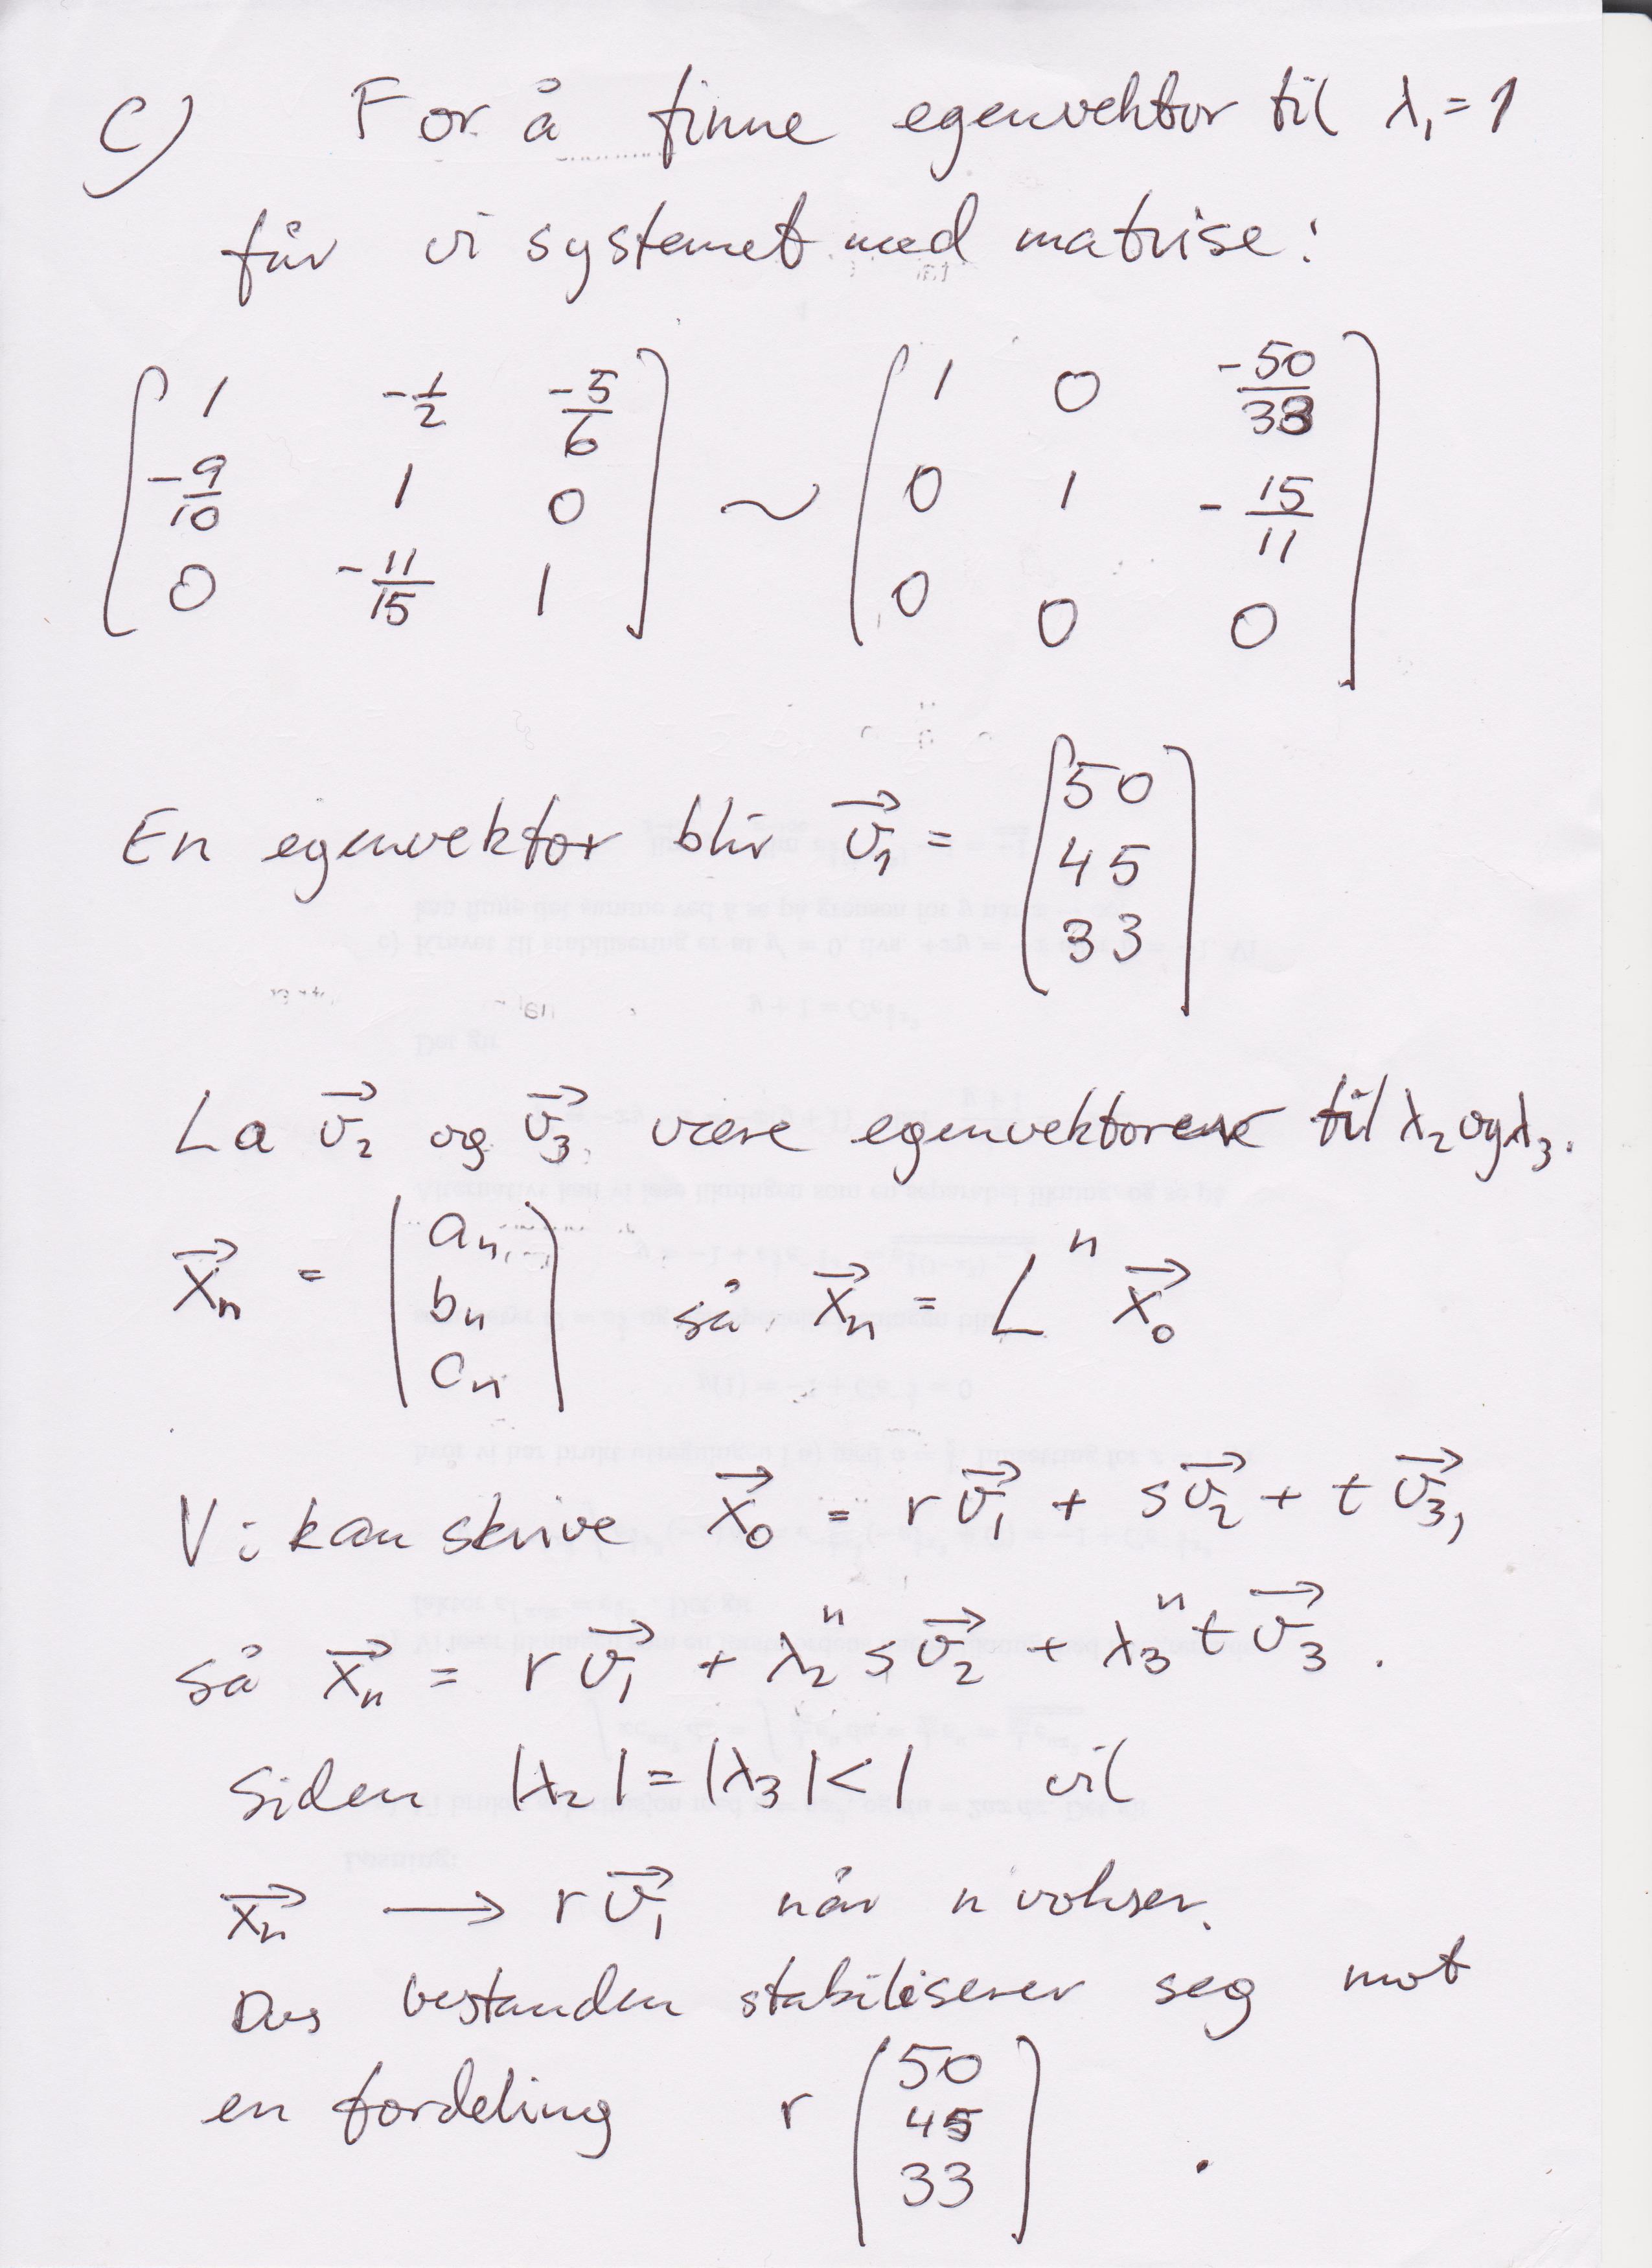 c) For å finne egenvektor til λ₁ = 1
får vi systemet med matrise:
[1 -1/2 -5/6; -9/10 1 0; 0 -11/15 1] ~ [1 0 -50/33; 0 1 -15/11; 0 0 0]
En egenvektor blir v⃗₁ = [50; 45; 33]
La v⃗₂ og v⃗₃ være egenvektorene til λ₂ og λ₃.
x⃗ₙ = (aₙ; bₙ; cₙ) så x⃗ₙ = Lⁿ x⃗₀
Vi kan skrive x⃗₀ = r v⃗₁ + s v⃗₂ + t v⃗₃,
så x⃗ₙ = r v⃗₁ + λ₂ⁿ s v⃗₂ + λ₃ⁿ t v⃗₃.
Siden |λ₂| = |λ₃| < 1 vil
x⃗ₙ → r v⃗₁ når n vokser.
Dvs bestanden stabiliserer seg mot
en fordeling r (50; 45; 33).